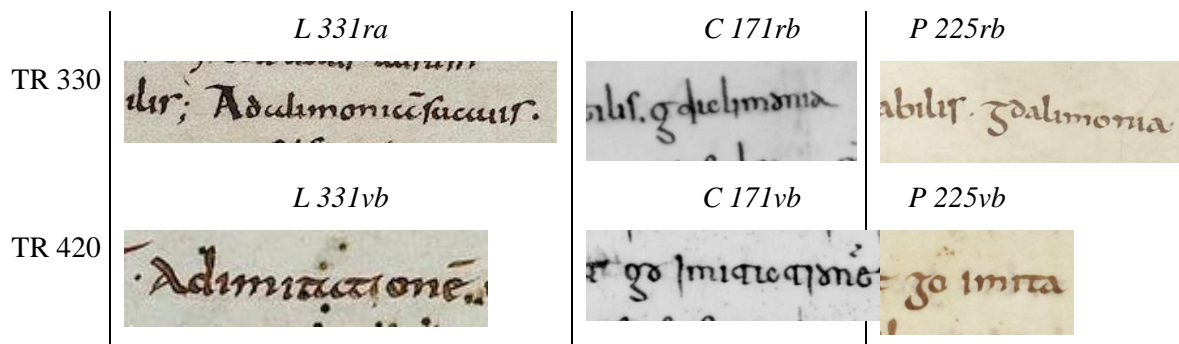 L 331ra C 171rb P 225rb
TR 330 ilis; Adalimoniā suauis. ilis. g abilis. gdalimonia
L 331vb C 171vb P 225vb
TR 420 Adimitationē go imitationē go imita